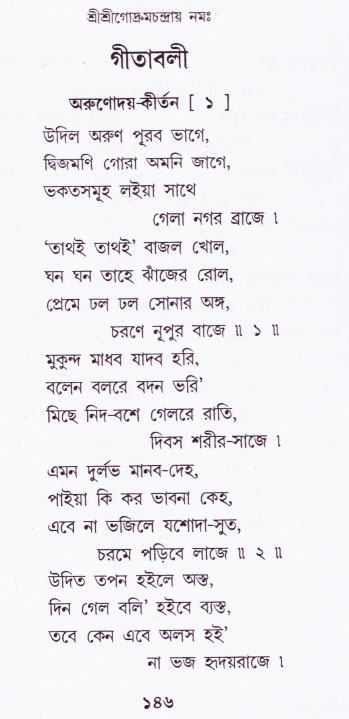 শ্রীশ্রীগোদ্রুমচন্দ্রায় নমঃ
গীতাবলী
অরুণোদয়-কীর্তন [ ১ ]
উদিল অরুণ পূরব ভাগে,
দ্বিজমণি গোরা অমনি জাগে,
ভকতসমূহ লইয়া সাথে
গেলা নগর ব্রাজে ৷
‘তাথই তাথই’ বাজল খোল,
ঘন ঘন তাহে ঝাঁজের রোল,
প্রেমে ঢল ঢল সোনার অঙ্গ,
চরণে নূপুর বাজে ॥ ১ ॥
মুকুন্দ মাধব যাদব হরি,
বলেন বলরে বদন ভরি’
মিছে নিদ-বশে গেলরে রাতি,
দিবস শরীর-সাজে ৷
এমন দুর্লভ মানব-দেহ,
পাইয়া কি কর ভাবনা কেহ,
এবে না ভজিলে যশোদা-সুত,
চরমে পড়িবে লাজে ॥ ২ ॥
উদিত তপন হইলে অস্ত,
দিন গেল বলি’ হইবে ব্যস্ত,
তবে কেন এবে অলস হই’
না ভজ হৃদয়রাজে ৷
১৪৬